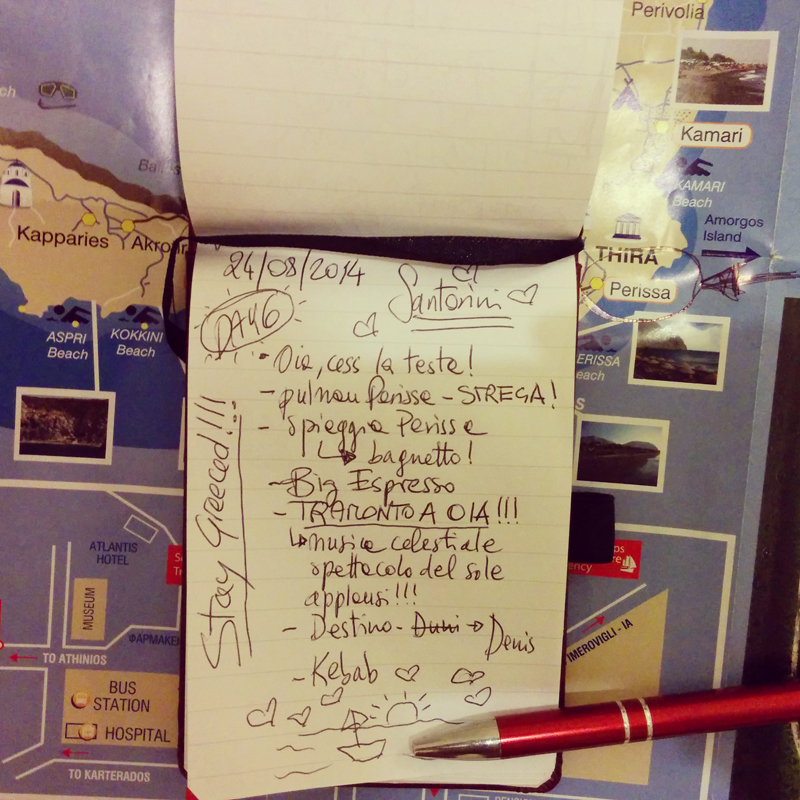 Perivolia
ch
Kamari
KAMARI
Beach
Amorgos
Island
THIRA
Perissa
Kapparies
Akro
ASPRI
Beach
KOKKINI
Beach
ERISSA
each
24/08/2014
Santorini
DAY6
- Oia, cess la testa!
- pulman Perissa - STREGA!
- spiaggia Perissa
↳ bagnetto!
- Big Espresso
- TRAMONTO A OIA!!!
↳ musica celestiale
spettacolo del sole
applausi!!!
- Destino - Duni → Denis
- Kebab
Stay Greeced!!!
ATLANTIS
HOTEL
MUSEUM
ΦΑΡΜΑΚΕ
TO ATHINIOS
BUS
STATION
HOSPITAL
TO KARTERADOS
IMEROVIGLI - IA